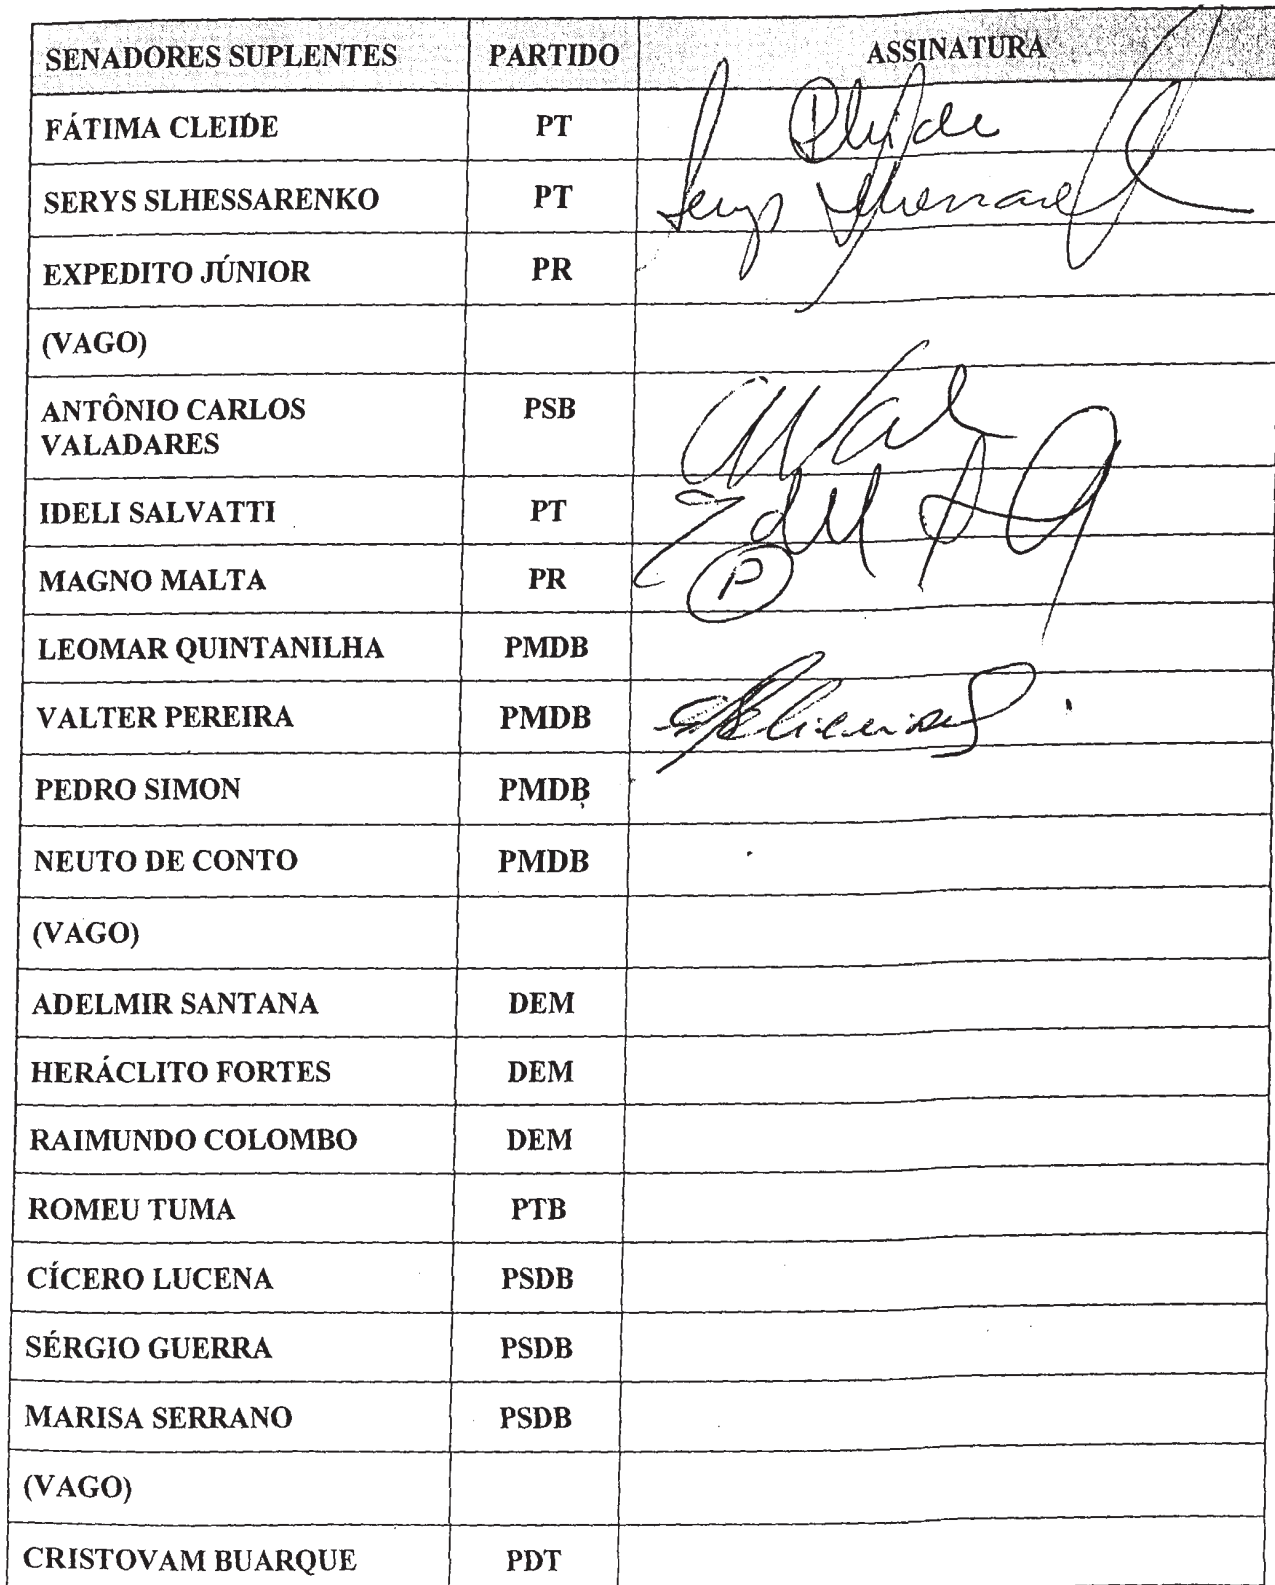 SENADORES SUPLENTES PARTIDO ASSINATURA
FÁTIMA CLEIDE PT
SERYS SLHESSARENKO PT Serys
EXPEDITO JÚNIOR PR
(VAGO)
ANTÔNIO CARLOS VALADARES PSB
IDELI SALVATTI PT
MAGNO MALTA PR P
LEOMAR QUINTANILHA PMDB
VALTER PEREIRA PMDB
PEDRO SIMON PMDB
NEUTO DE CONTO PMDB
(VAGO)
ADELMIR SANTANA DEM
HERÁCLITO FORTES DEM
RAIMUNDO COLOMBO DEM
ROMEU TUMA PTB
CÍCERO LUCENA PSDB
SÉRGIO GUERRA PSDB
MARISA SERRANO PSDB
(VAGO)
CRISTOVAM BUARQUE PDT